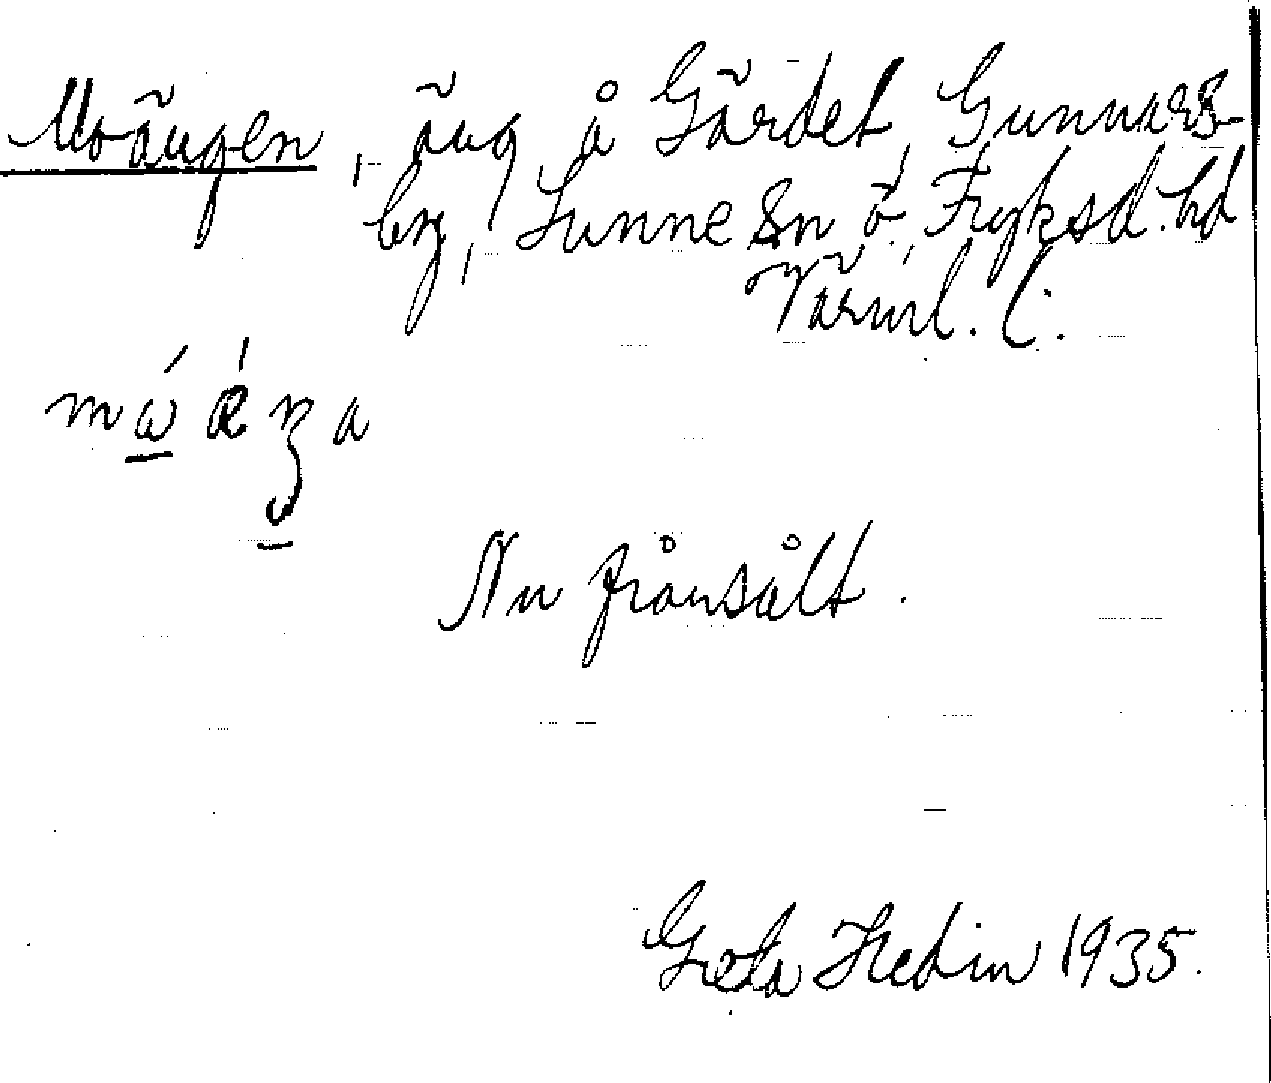 Moängen, äng å Gärdet, Gunnars-
by, Sunne Sn ö. Fryksd. hd
Värml. l.
Nu frånsålt.
Greta Hedin 1935.